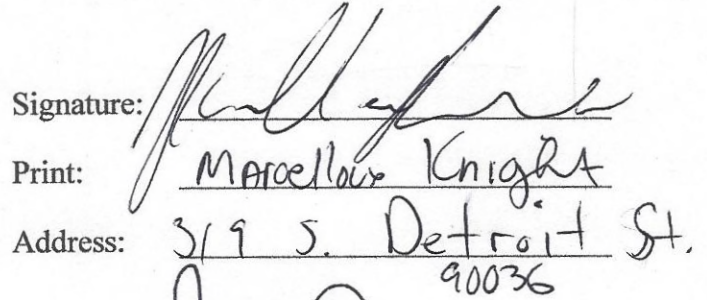 Signature:
Print: Marcellous Knight
Address: 319 S. Detroit St.
90036